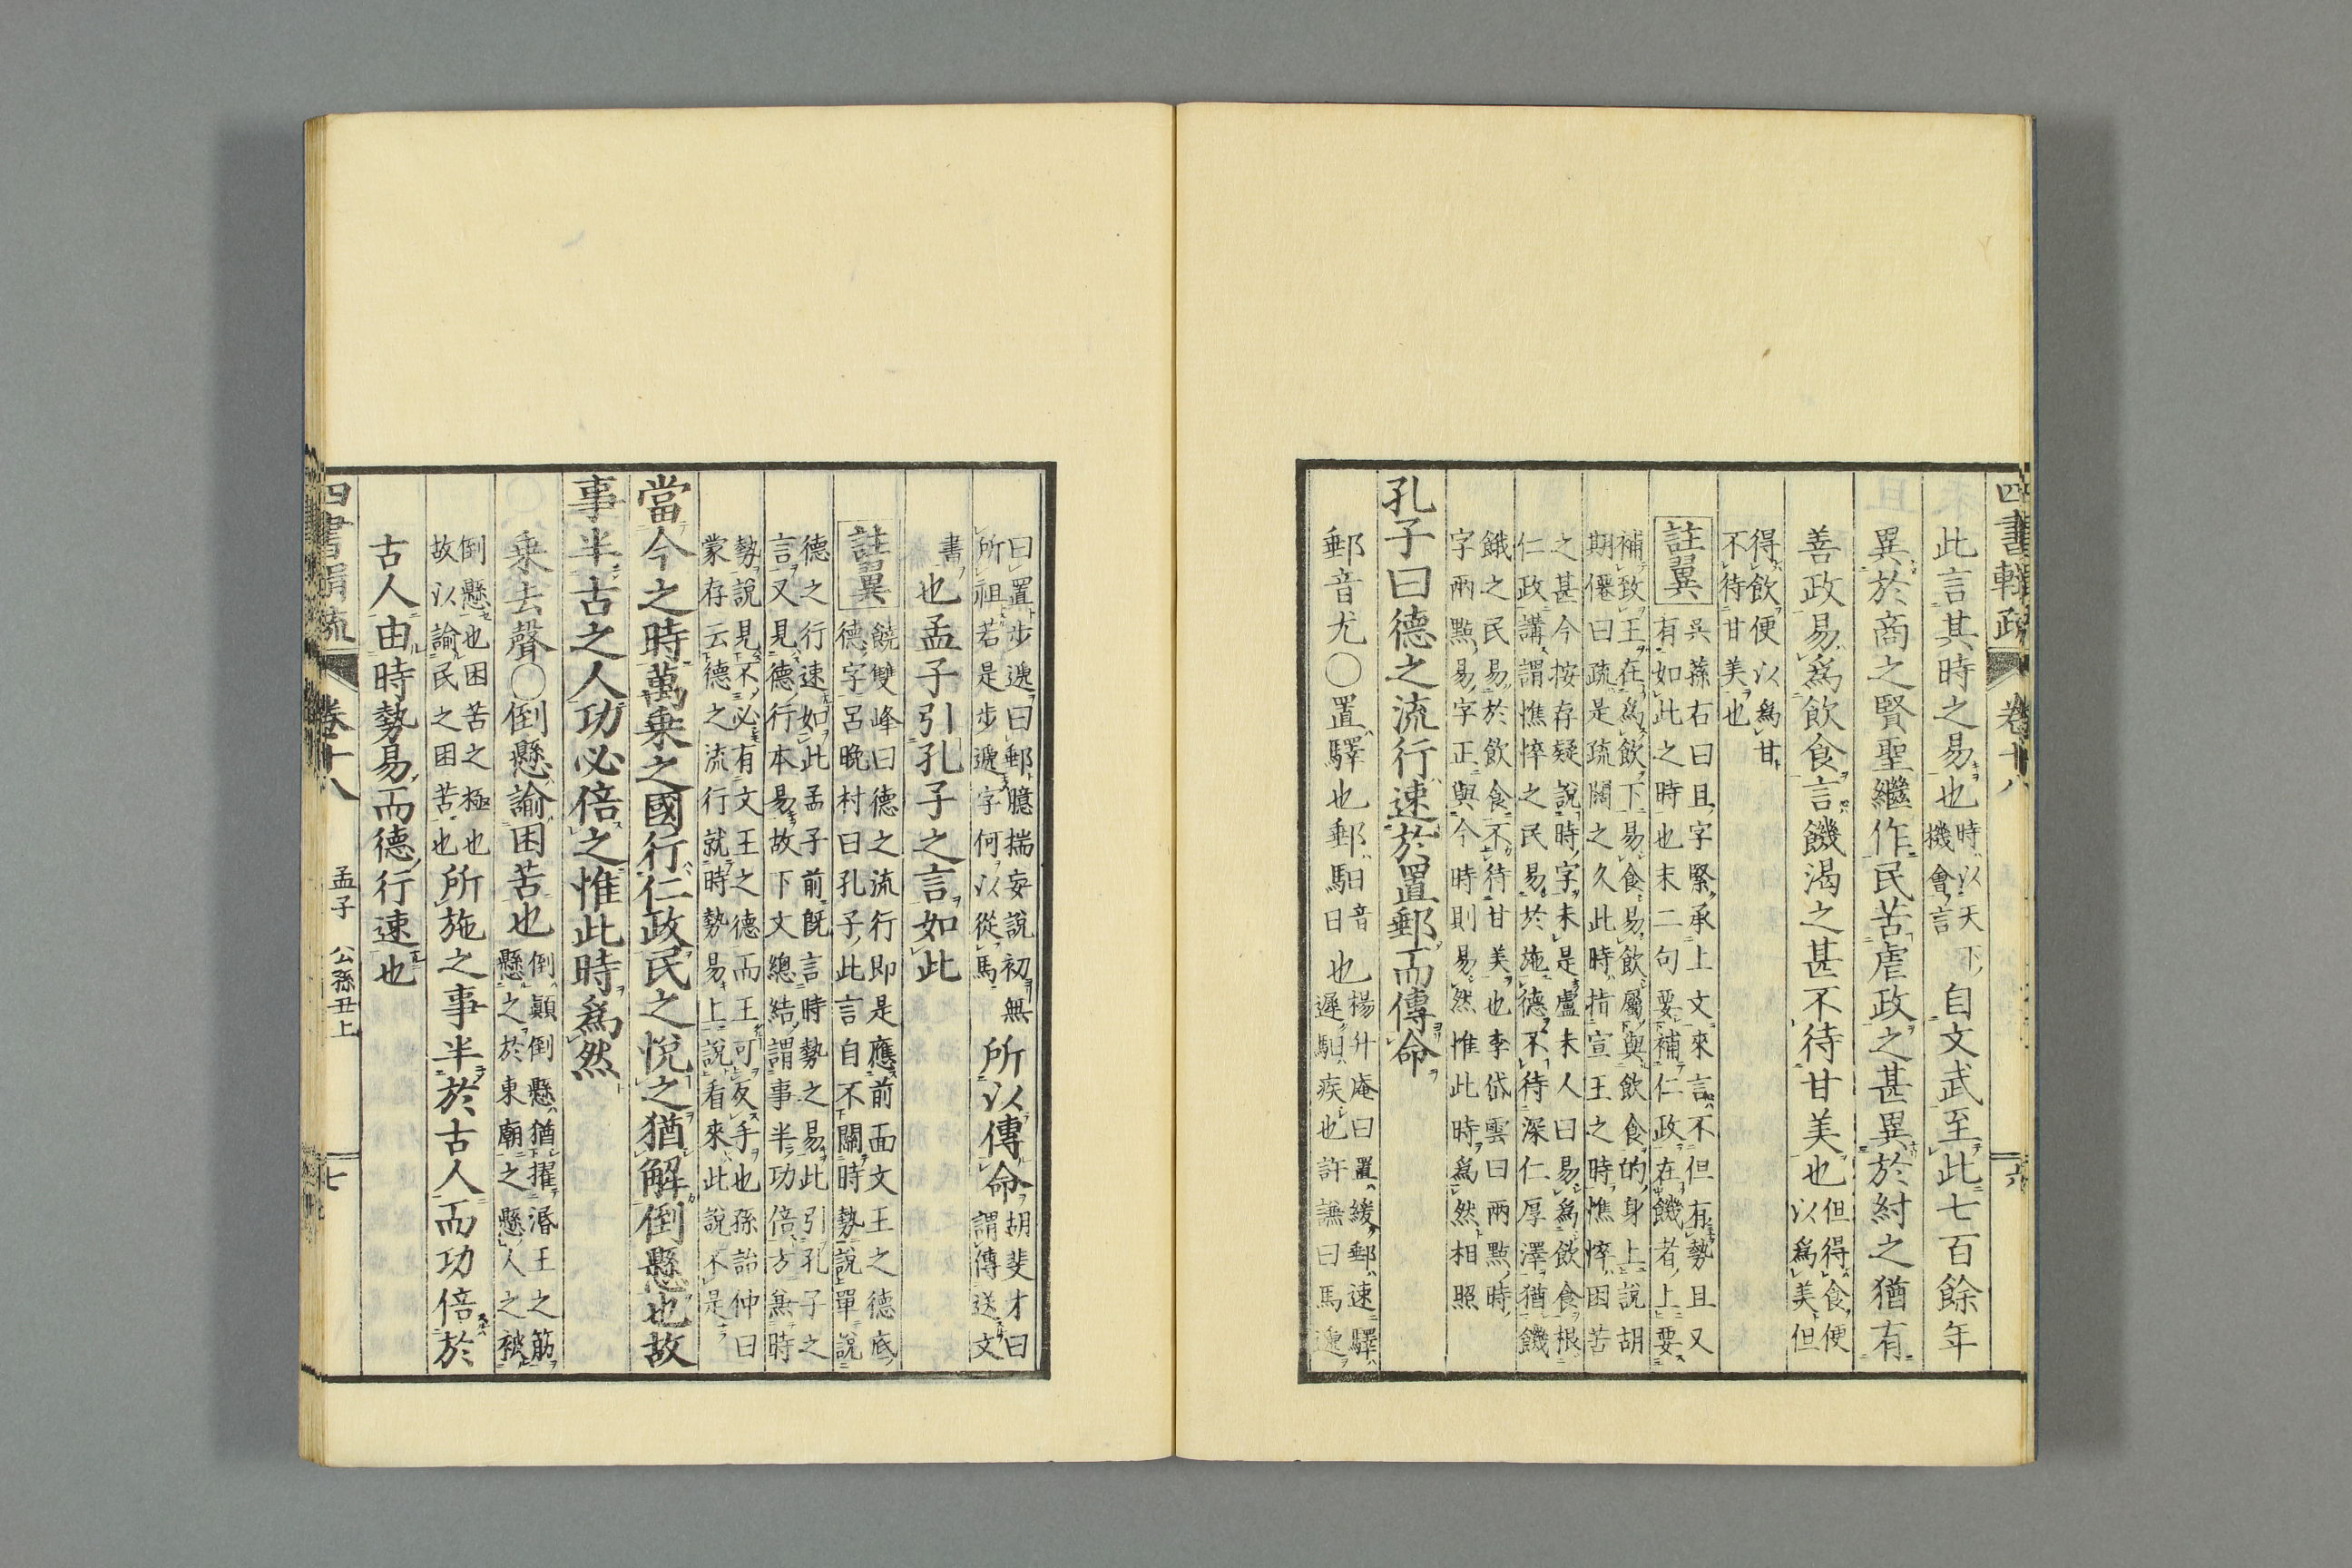 四書輯疏 卷十八 六
此言其時之易也時以天下機會言自文武至此七百餘年
異於商之賢聖繼作民苦虐政之甚異於紂之猶有
善政易爲飮食言饑渴之甚不待甘美也但得食便以爲美但
得飮便以爲甘不待甘美也
註翼吳蓀右曰且字緊承上文來言不但有勢且又有如此之時也末二句要補仁政在饑者上要
補致王在爲飮下易食易飮屬與飮食的身上說胡期僊曰疏是疏闊之久此時指宣王之時憔悴困苦
之甚今按存疑說時字未是盧未人曰易爲飮食根仁政講謂憔悴之民易於施德不待深仁厚澤猶饑
餓之民易於飮食不待甘美也李岱雲曰兩點時字兩點易字正與今時則易然惟此時爲然相照
孔子曰德之流行速於置郵而傳命
郵音尤○置驛也郵馹也馹音日楊升庵曰置緩郵速驛遲馹疾也許謙曰馬遞
曰置步遞曰郵臆揣妄說初無所祖若是步遞字何以從馬所以傳命胡斐才曰謂傳送文
書也孟子引孔子之言如此
註翼饒雙峰曰德之流行即是應前面文王之德底德字呂晚村曰孔子此言自不關時勢說單說
德之行速如此孟子前既言時勢之易此引孔子之言又見德行本易故下文總結謂事半功倍方兼時
勢說見不必有文王之德而王可反手也孫詒仲曰蒙存云德之流行就時勢易上說看來此說不是
當今之時萬乘之國行仁政民之悅之猶解倒懸也故
事半古之人功必倍之惟此時爲然
乘去聲○倒懸諭困苦也倒顛倒懸猶擢湣王之筋懸之於東廟之懸人之被
倒懸也困苦之極也故以諭民之困苦也所施之事半於古人而功倍於
古人由時勢易而德行速也
四書輯疏 卷十八 孟子 公孫丑上 七